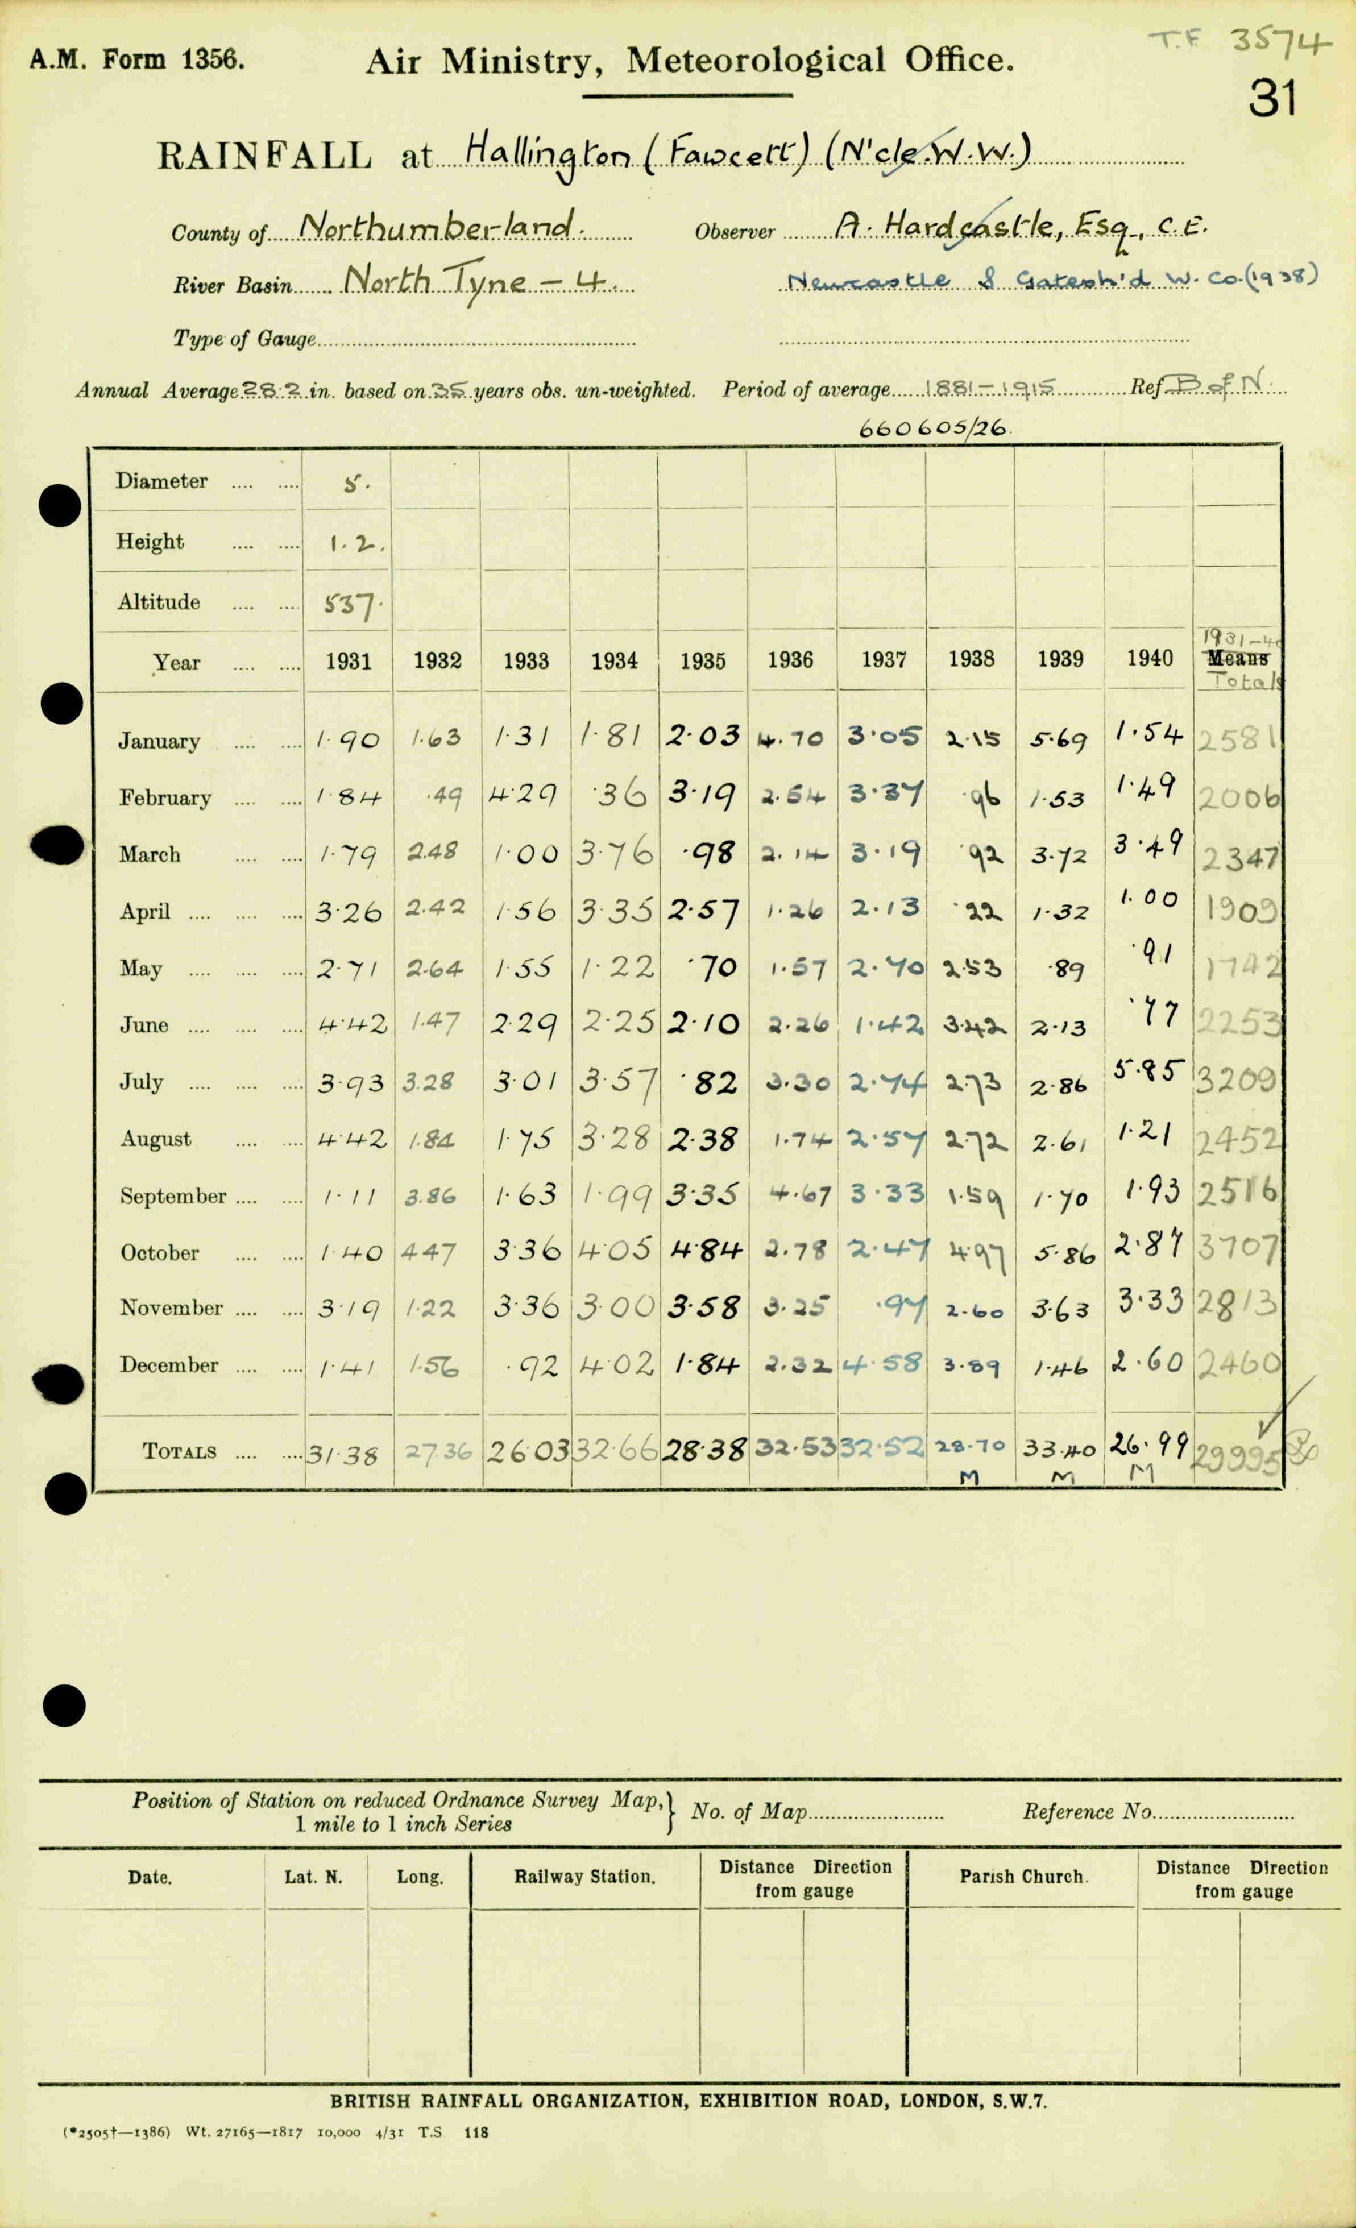 T.F 3574
A.M. Form 1356. Air Ministry, Meteorological Office.
31
RAINFALL at Hallington (Fawcett) (N'cle.W.W.)
County of Northumberland. Observer A. Hardcastle, Esq., C.E.
River Basin North Tyne – 4. Newcastle & Gatesh'd W. Co.(1938)
Type of Gauge
Annual Average 28.2 in. based on 35 years obs. un-weighted. Period of average 1881–1915 Ref B of N.
660605/26.
Diameter 5.
Height 1.2.
Altitude 537.
1931–40
Year 1931 1932 1933 1934 1935 1936 1937 1938 1939 1940 Means
Totals
January 1.90 1.63 1.31 1.81 2.03 4.70 3.05 2.15 5.69 1.54 2581
February 1.84 .49 4.29 .36 3.19 2.54 3.37 .96 1.53 1.49 2006
March 1.79 2.48 1.00 3.76 .98 2.14 3.19 .92 3.72 3.49 2347
April 3.26 2.42 1.56 3.35 2.57 1.26 2.13 .22 1.32 1.00 1909
May 2.71 2.64 1.55 1.22 .70 1.57 2.70 2.53 .89 .91 1742
June 4.42 1.47 2.29 2.25 2.10 2.26 1.42 3.42 2.13 .77 2253
July 3.93 3.28 3.01 3.57 .82 3.30 2.74 2.73 2.86 5.85 3209
August 4.42 1.84 1.75 3.28 2.38 1.74 2.57 2.72 2.61 1.21 2452
September 1.11 3.86 1.63 1.99 3.35 4.67 3.33 1.59 1.70 1.93 2516
October 1.40 4.47 3.36 4.05 4.84 2.78 2.47 4.97 5.86 2.87 3707
November 3.19 1.22 3.36 3.00 3.58 3.25 .97 2.60 3.63 3.33 2813
December 1.41 1.56 .92 4.02 1.84 2.32 4.58 3.89 1.46 2.60 2460
TOTALS 31.38 27.36 26.03 32.66 28.38 32.53 32.52 28.70 33.40 26.99 29995
M M M
Position of Station on reduced Ordnance Survey Map, } No. of Map Reference No.
1 mile to 1 inch Series
Date. Lat. N. Long. Railway Station. Distance Direction from gauge Parish Church. Distance Direction from gauge
BRITISH RAINFALL ORGANIZATION, EXHIBITION ROAD, LONDON, S.W.7.
(*2505†—1386) Wt. 27165—1817 10,000 4/31 T.S. 118